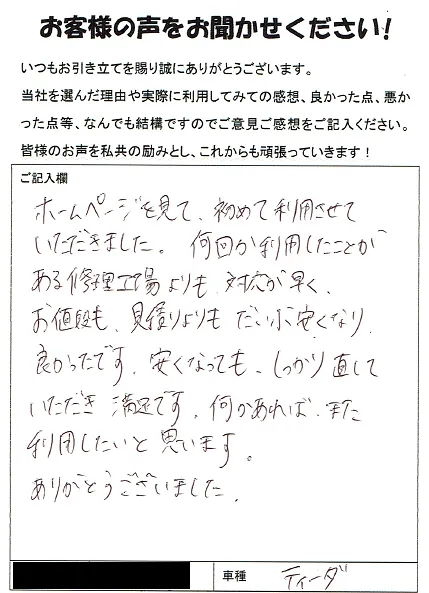 お客様の声をお聞かせください!
いつもお引き立てを賜り誠にありがとうございます。
当社を選んだ理由や実際に利用してみての感想、良かった点、悪か
った点等、なんでも結構ですのでご意見ご感想をご記入ください。
皆様のお声を私共の励みとし、これからも頑張っていきます!
ご記入欄
ホームページを見て、初めて利用させて
いただきました。何回か利用したことが
ある修理工場よりも、対応が早く、
お値段も、見積りよりもだいぶ安くなり
良かったです。安くなっても、しっかり直して
いただき満足です。何かあれば、また
利用したいと思います。
ありがとうございました。
車種 ティーダ